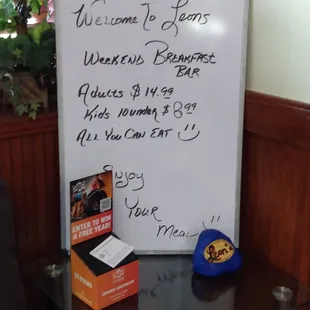 Welcome To Leons
Weekend Breakfast
Bar
Adults $14.99
Kids 10 under $8.99
All You Can Eat
Enjoy
Your
Meal
ENTER TO WIN
A FREE YEAR!
Leon's